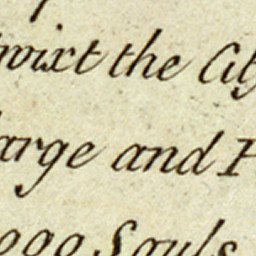 twixt the City
arge and
000 Souls